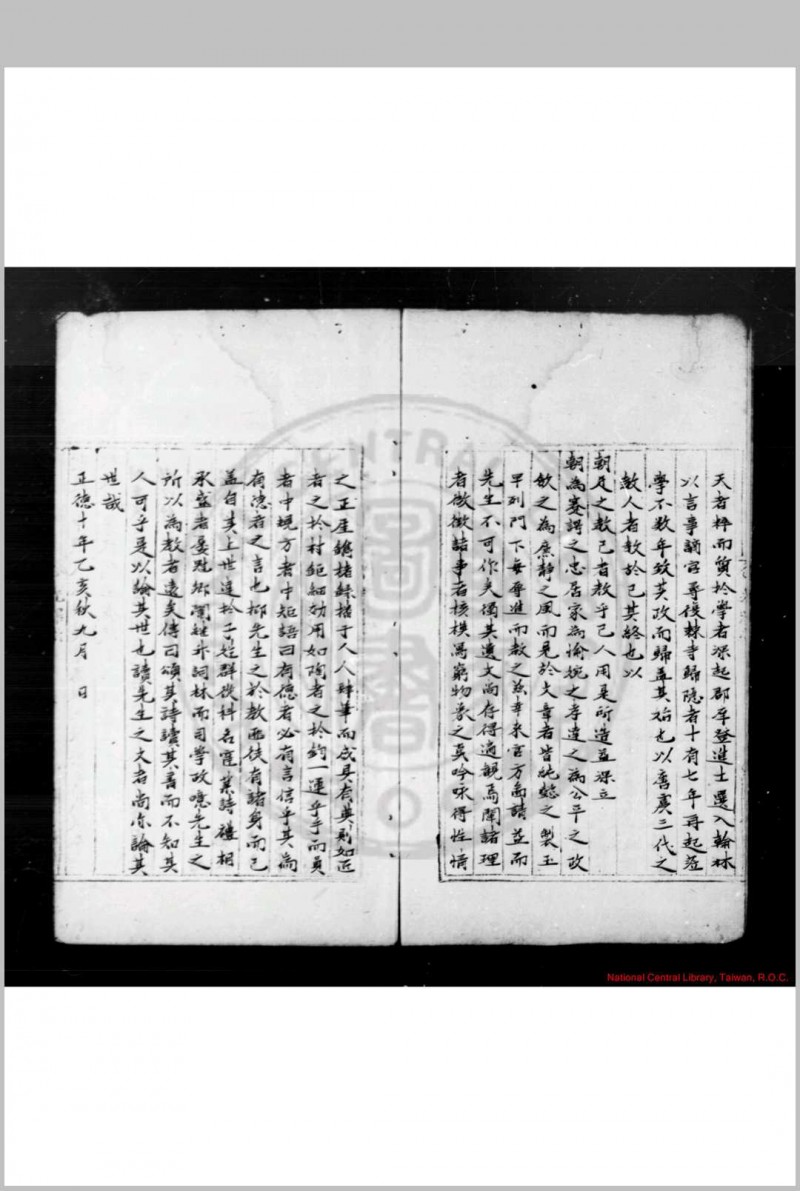 天者粹而質於學者深起郡庠登進士選入翰林
以言事謫官尋俟棘寺歸隱者十有七年再起蒞
學不數年致其政而歸蓋其始也以唐虞三代之
教人者教於己其終也以
朝廷之教己者教乎己人用是所造益深立
朝為謇諤之忠居家為愉婉之孝達之為公平之政
飲之為廉靜之風而見於文章者皆純懿之製玉
早列門下每尋進而教之茲幸来官方面請益而
先生不可作矣獨其遺文尚存得過觀焉闡諸理
者微徵諸事者核模寫窮物象之真吟咏得性情
之正屋譙楮綠楷于人人肆筆而成具有典則如匠
者之於材鉅細効用如陶者之於鈞一運乎手而員
者中規方者中矩語曰有德者必有言信乎其為
有德者之言也抑先生之於教而徒有諸身而已
蓋自其上世逹於子姓群從科名寔業詩禮相
承盛者憂既鄉闈継升詞林而司學政噫先生之
所以為教者遠矣傳曰頌其詩讀其書而不知其
人可乎是以論其世也讀先生之文者尚亦論其
世哉
正德十年乙亥秋九月 日
National Central Library, Taiwan, R.O.C.